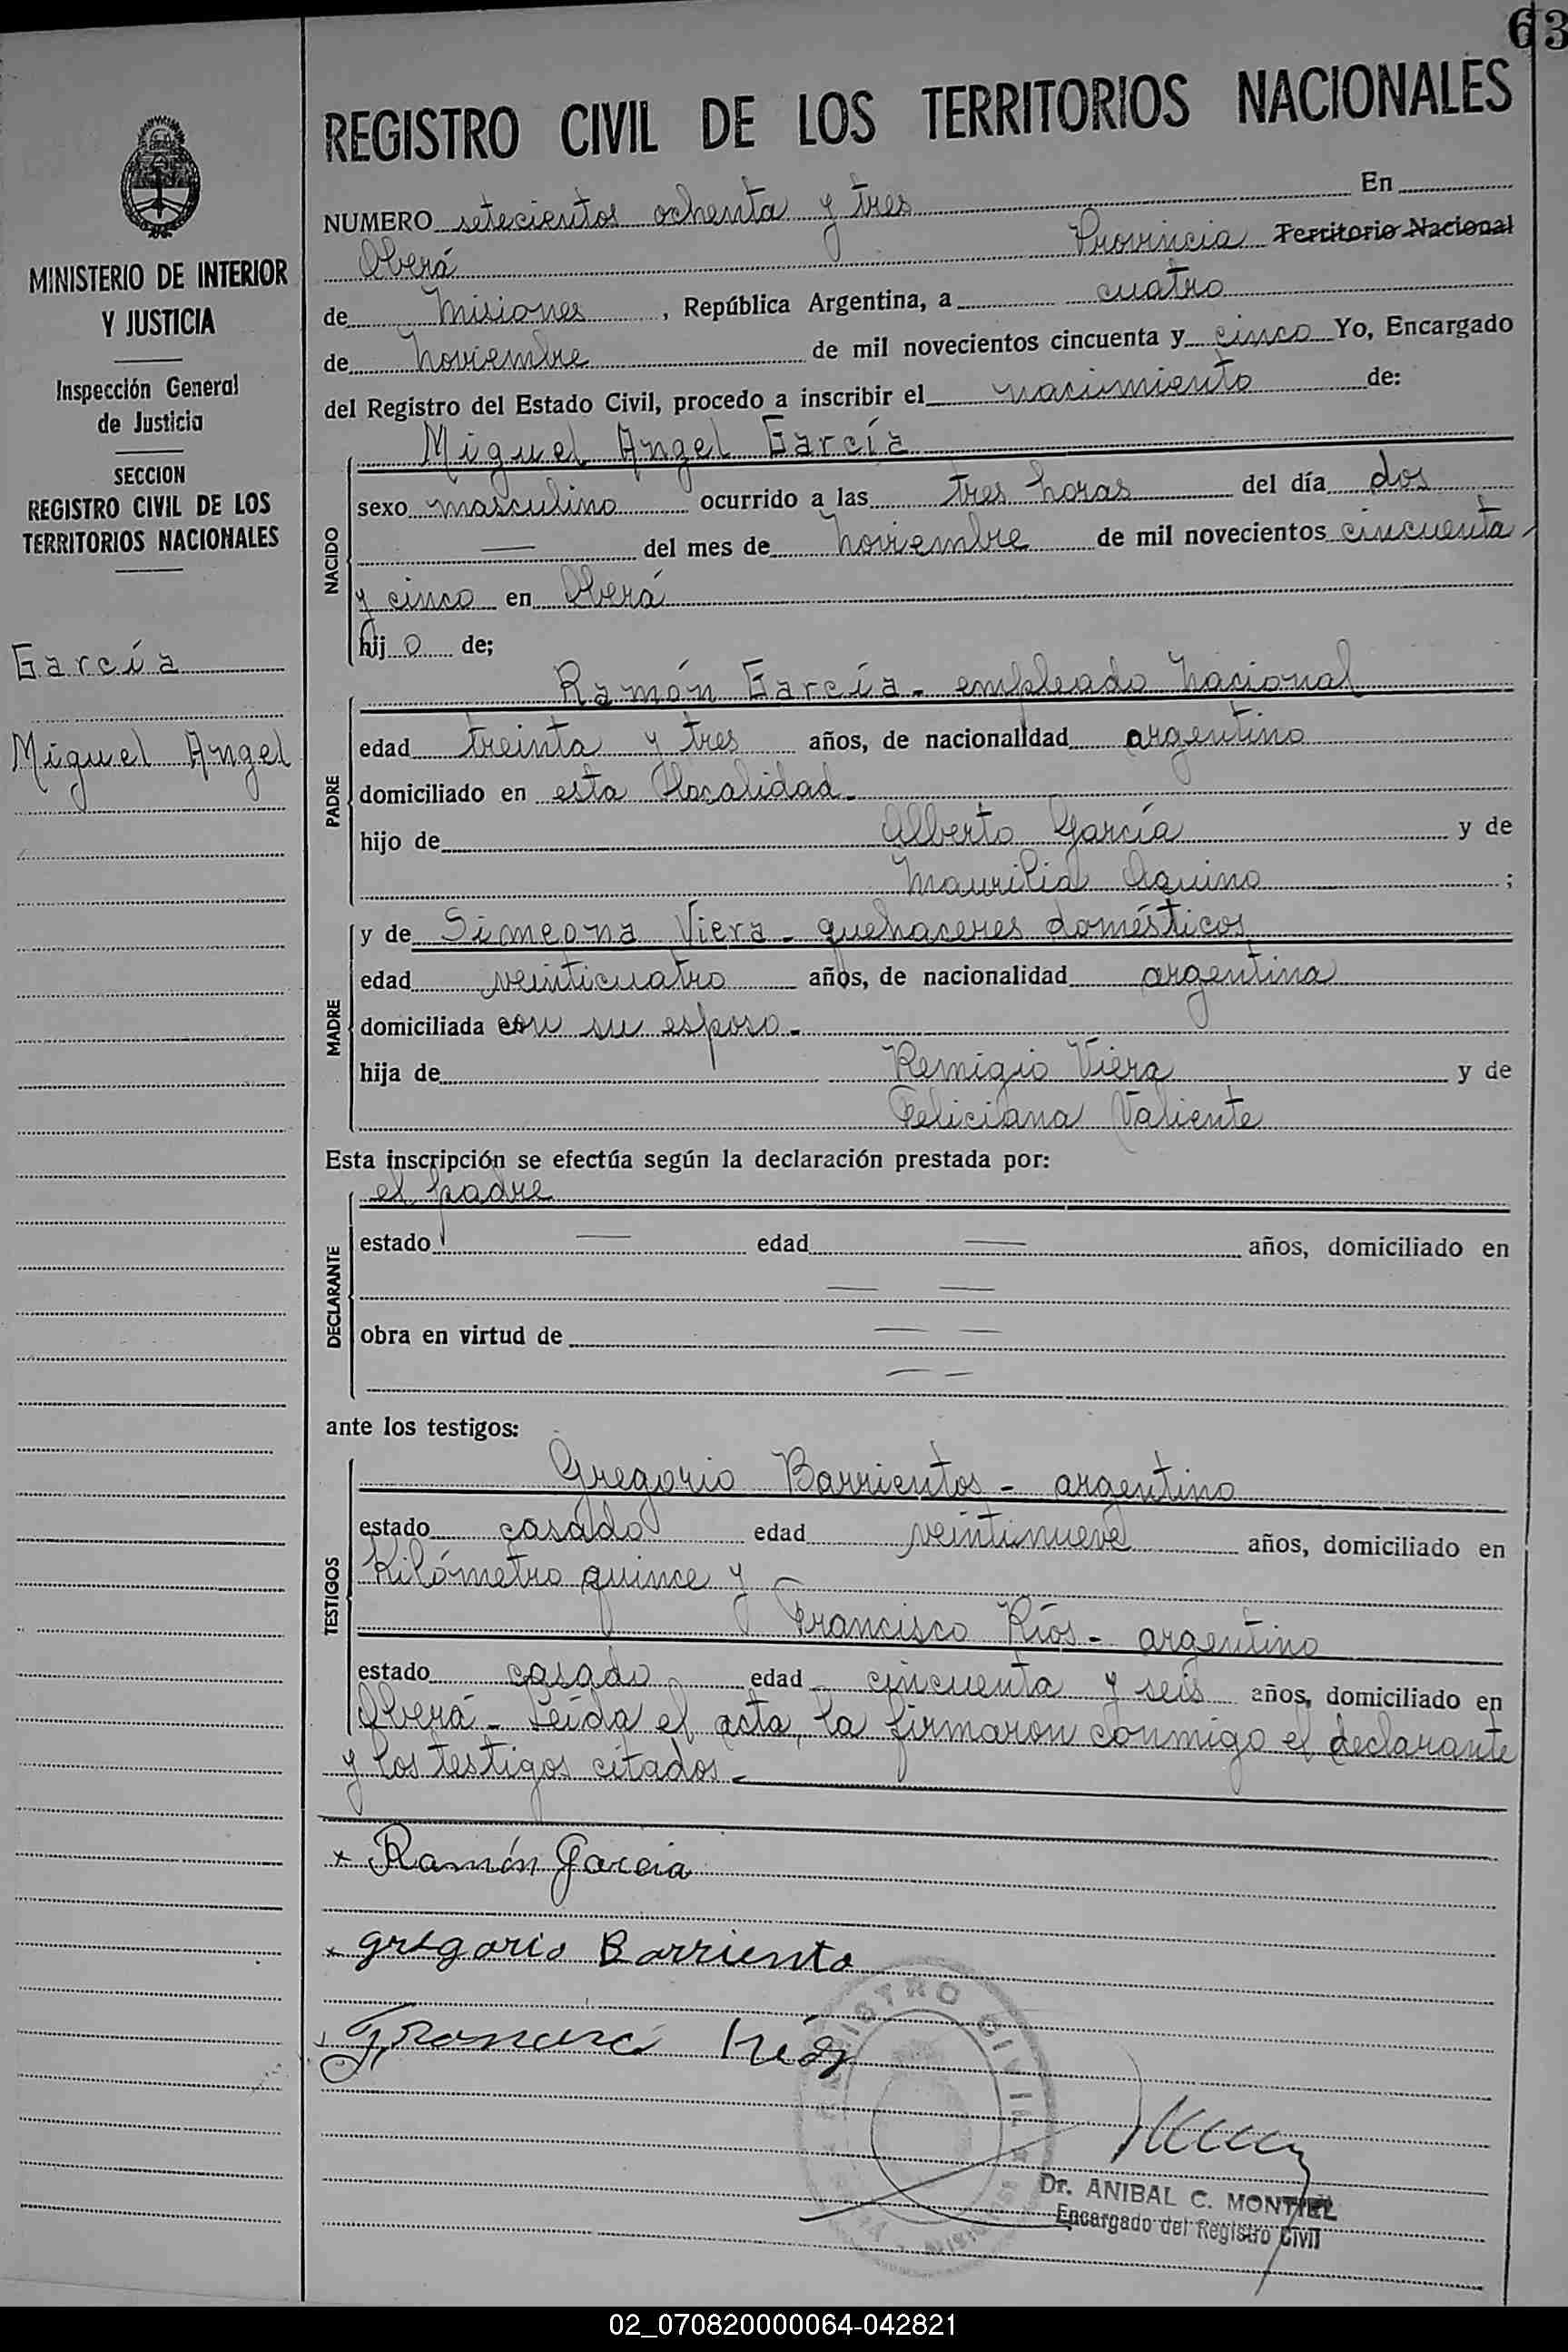 63
REGISTRO CIVIL DE LOS TERRITORIOS NACIONALES
MINISTERIO DE INTERIOR
Y JUSTICIA
Inspección General
de Justicia
SECCION
REGISTRO CIVIL DE LOS
TERRITORIOS NACIONALES
García
Miguel Angel
NUMERO setecientos ochenta y tres En
Oberá Provincia Territorio Nacional
de Misiones, República Argentina, a cuatro
de Noviembre de mil novecientos cincuenta y cinco Yo, Encargado
del Registro del Estado Civil, procedo a inscribir el nacimiento de:
NACIDO
Miguel Angel García
sexo masculino ocurrido a las tres horas del día dos
— del mes de Noviembre de mil novecientos cincuenta
y cinco en Oberá
hijo de;
PADRE
Ramón García - empleado Nacional
edad treinta y tres años, de nacionalidad argentino
domiciliado en esta localidad -
hijo de Alberto García y de
Maurilia Aquino ;
MADRE
y de Simeona Viera - quehaceres domésticos
edad veinticuatro años, de nacionalidad argentina
domiciliada con su esposo -
hija de Remigio Viera y de
Feliciana Valiente
Esta inscripción se efectúa según la declaración prestada por:
DECLARANTE
el padre
estado — edad — años, domiciliado en
— —
obra en virtud de — —
— —
ante los testigos:
TESTIGOS
Gregorio Barrientos - argentino
estado casado edad veintinueve años, domiciliado en
Kilómetro quince y
Francisco Ríos - argentino
estado casado edad cincuenta y seis años, domiciliado en
Oberá - Leída el acta, la firmaron conmigo el declarante
y los testigos citados -
x Ramón Garcia
x gregorio Barriento
REGISTRO CIVIL
Dr. ANIBAL C. MONTIEL
Encargado del Registro Civil
02_070820000064-042821